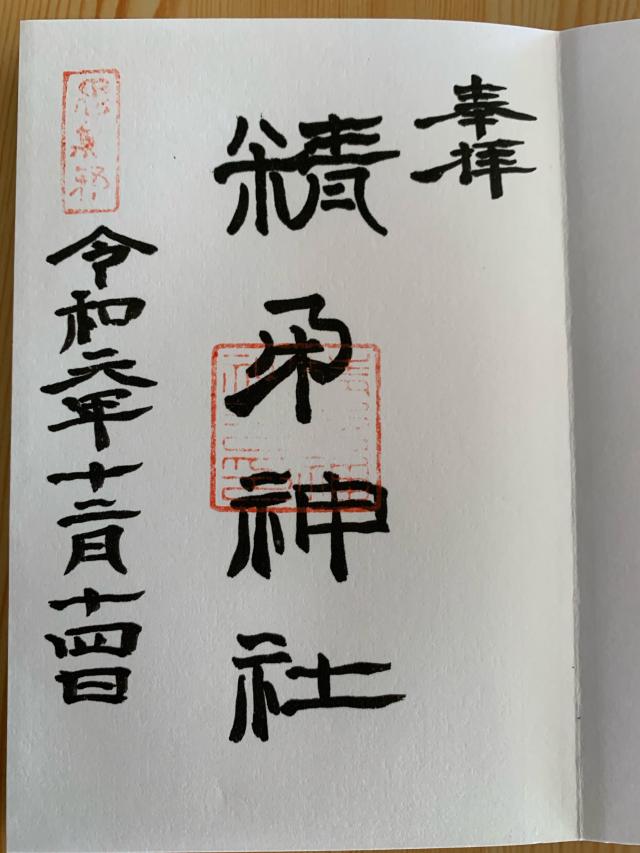 奉拝
精矛神社
令和元年十二月十四日